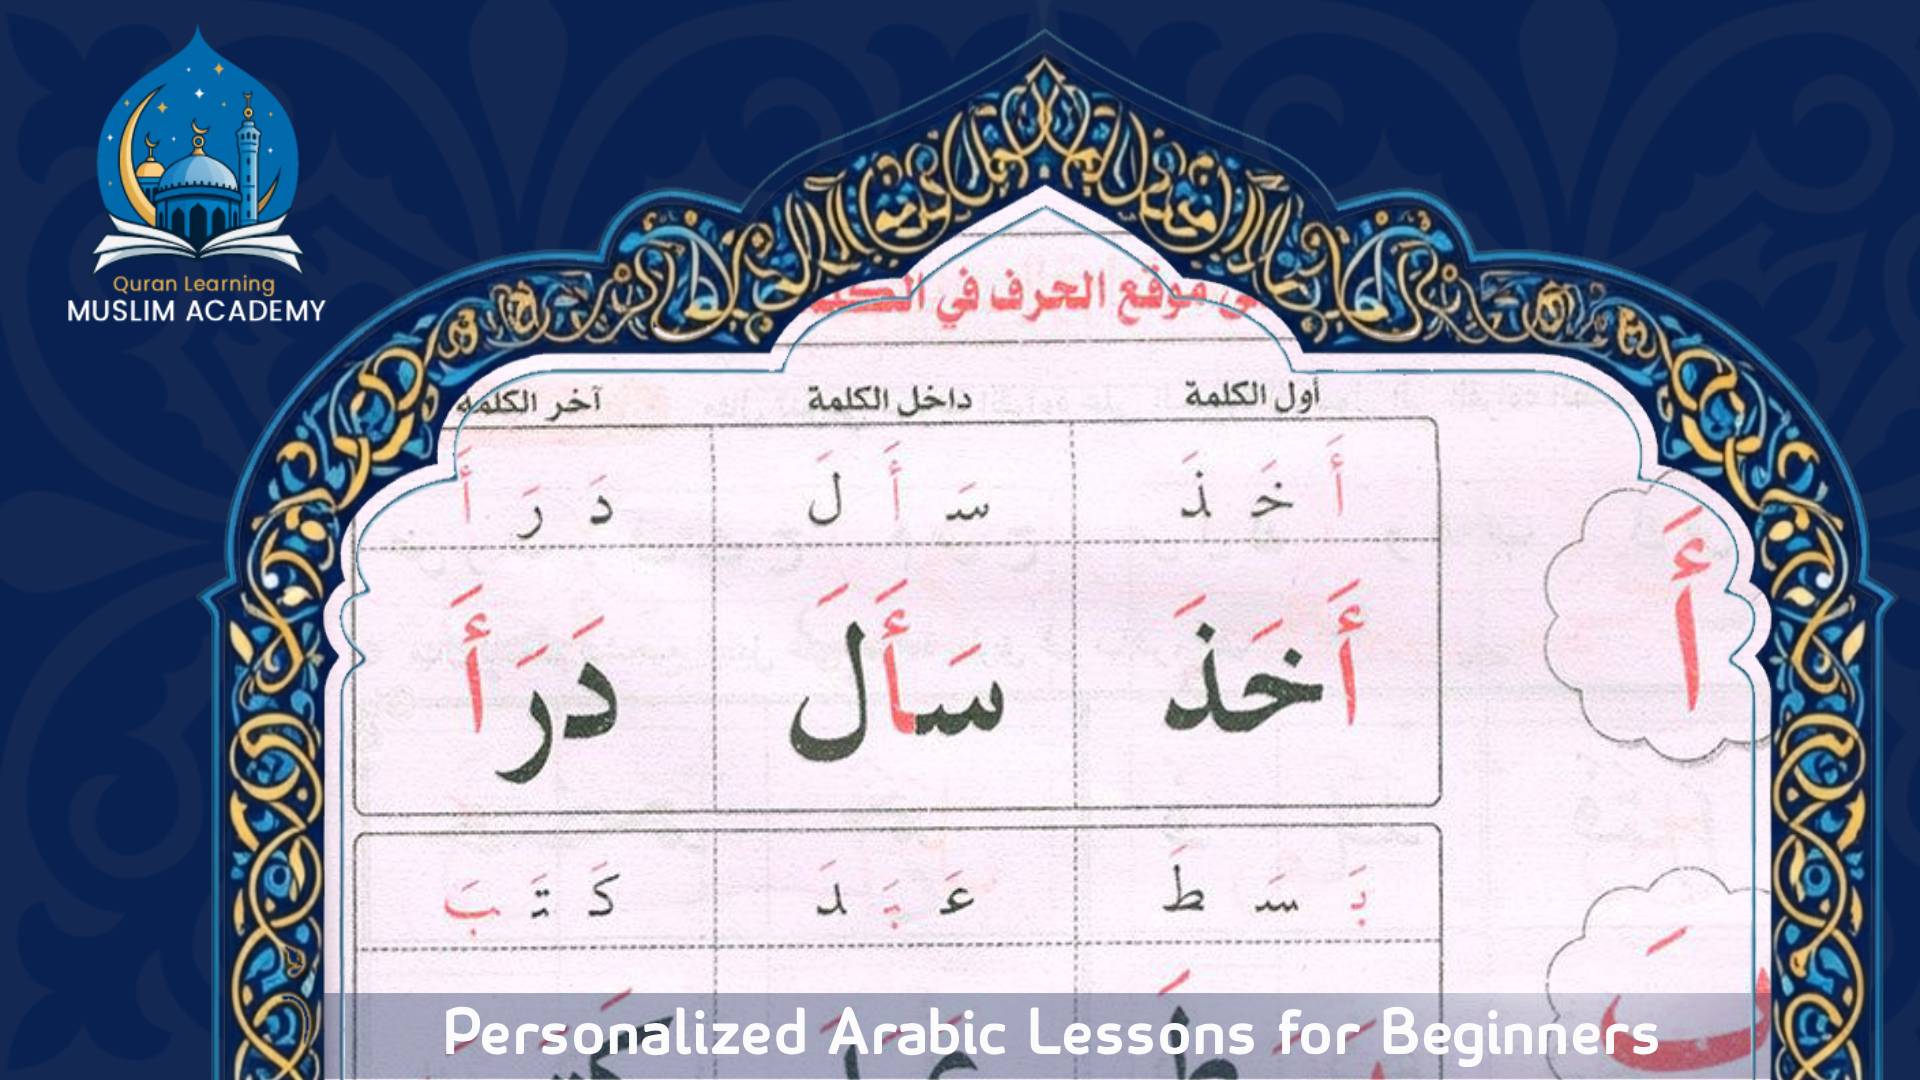 Quran Learning
MUSLIM ACADEMY
موقع الحرف في
أول الكلمة داخل الكلمة آخر الكلمة
أَ خَـ ذَ سَـ أَ لَ دَ رَ أَ
أَ
أَخَذَ سَأَلَ دَرَأَ
بَـ سَـ طَ عَـ بَـ دَ كَـ تَـ بَ
بَ
Personalized Arabic Lessons for Beginners